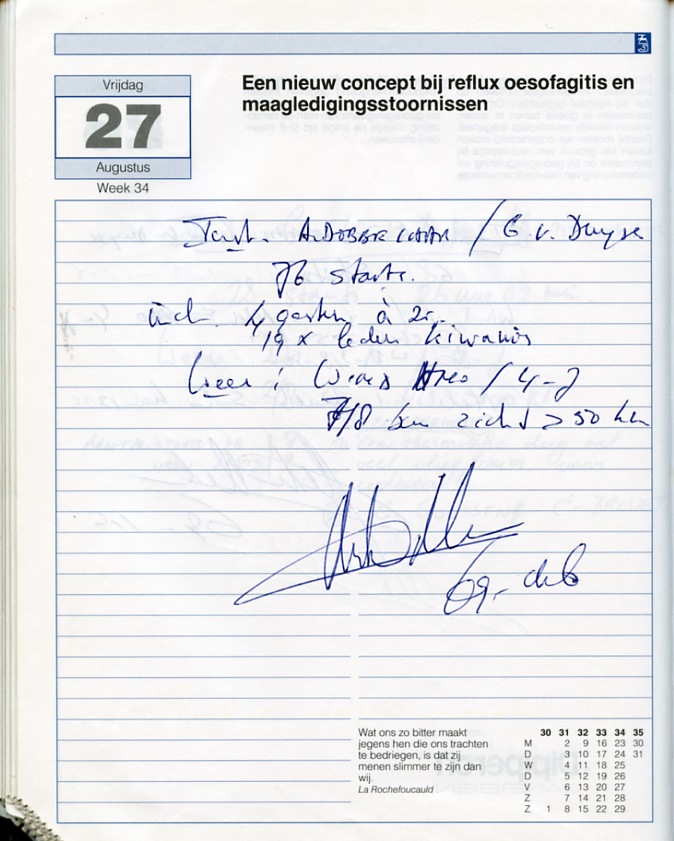 Vrijdag
27
Augustus
Week 34
Een nieuw concept bij reflux oesofagitis en
maagledigingsstoornissen
A. DOBBELAAR / E. v. Duyse
76 starts.
4 gasten à 2
19 x leden kiwanis
Weer : / 4-7
7/8 ben zicht > 50 km
69,- deb
Wat ons zo bitter maakt
jegens hen die ons trachten
te bedriegen, is dat zij
menen slimmer te zijn dan
wij.
La Rochefoucauld
30 31 32 33 34 35
M 2 9 16 23 30
D 3 10 17 24 31
W 4 11 18 25
D 5 12 19 26
V 6 13 20 27
Z 7 14 21 28
Z 1 8 15 22 29